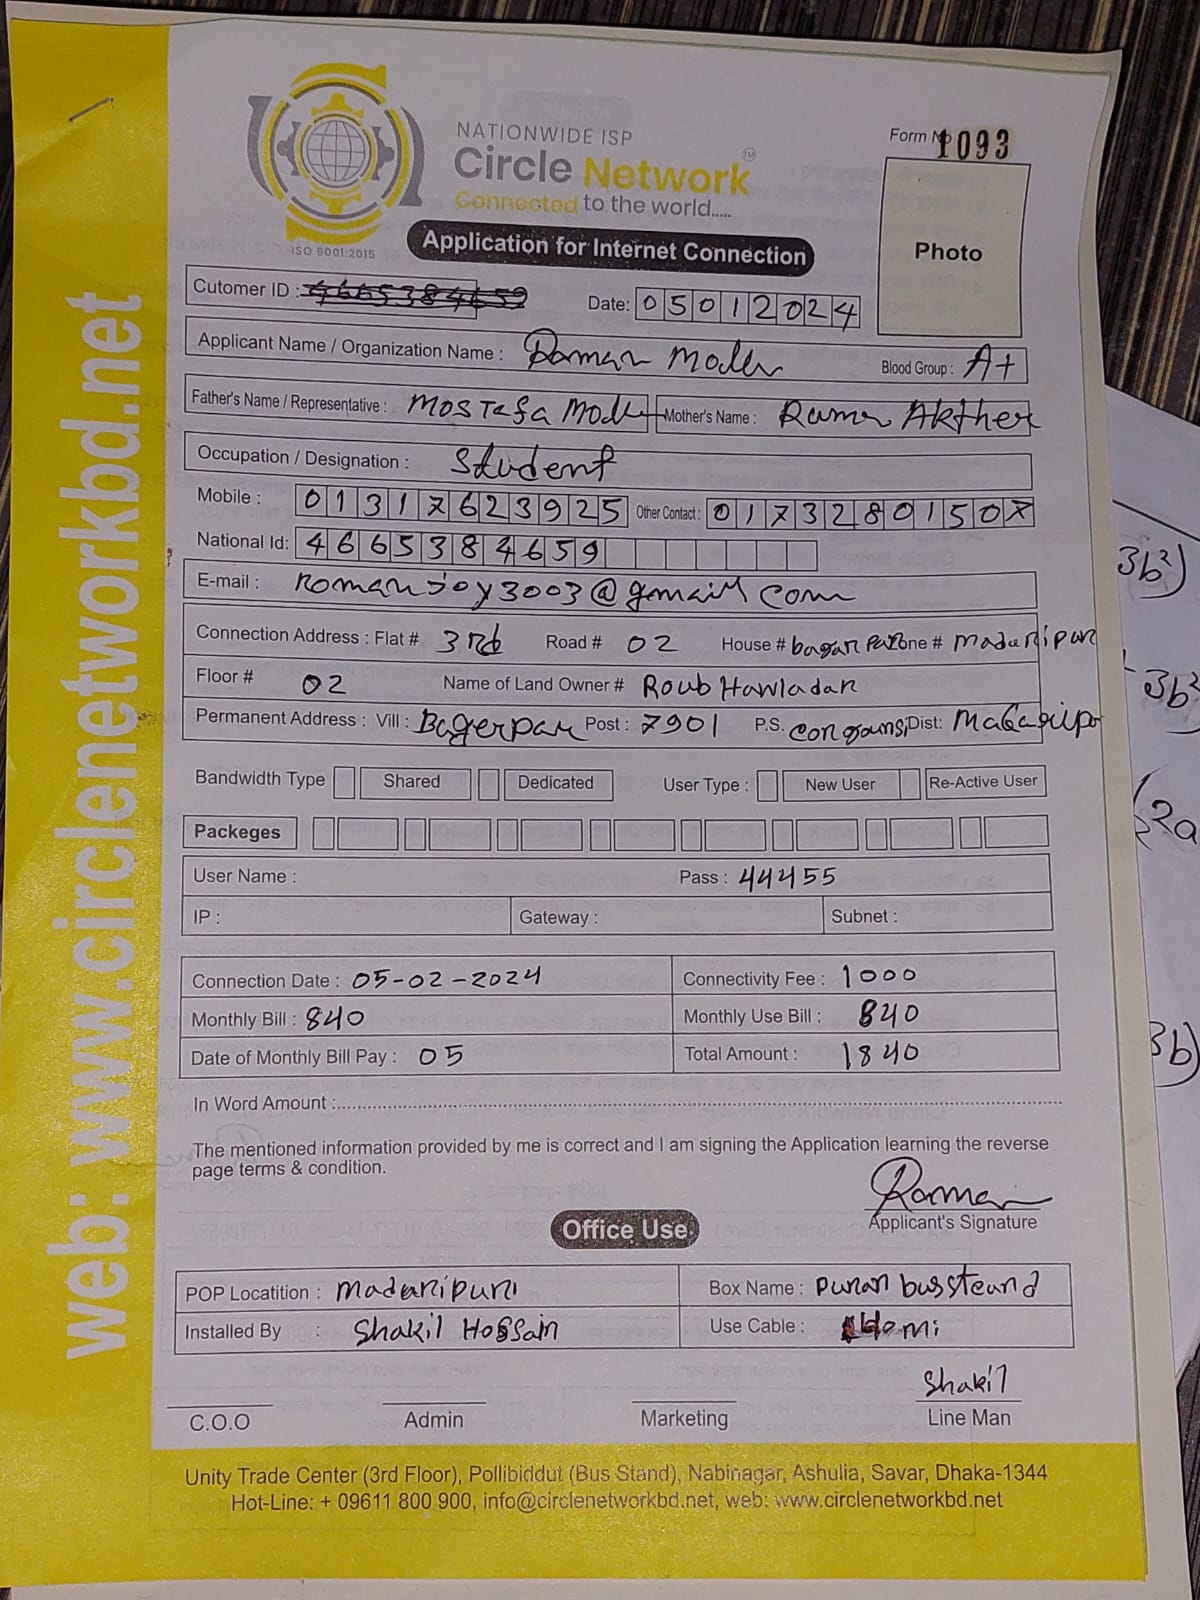 web: www.circlenetworkbd.net
NATIONWIDE ISP
Circle Network TM
Connected to the world.....
ISO 9001:2015
Form No 1093
Photo
Application for Internet Connection
Cutomer ID : 4665384659 Date: 05012024
Applicant Name / Organization Name : Roman Blood Group : A+
Father's Name / Representative : Mostafa Mother's Name : Akther
Occupation / Designation : Student
Mobile : 01317623925 Other Contact : 01732801507
National Id: 4665384659
E-mail : romanjoy3003@gmail com
Connection Address : Flat # 3rd Road # 02 House # Zone # Madaripur
Floor # 02 Name of Land Owner # Roub Hawladar
Permanent Address : Vill : Bagerpar Post : 7901 P.S. Dist: Madaripur
Bandwidth Type Shared Dedicated User Type : New User Re-Active User
Packeges
User Name : Pass : 44455
IP : Gateway : Subnet :
Connection Date : 05-02-2024 Connectivity Fee : 1000
Monthly Bill : 840 Monthly Use Bill : 840
Date of Monthly Bill Pay : 05 Total Amount : 1840
In Word Amount :
The mentioned information provided by me is correct and I am signing the Application learning the reverse
page terms & condition.
Roman
Applicant's Signature
Office Use
POP Locatition : Madaripur Box Name : Puran bussteand
Installed By : Shakil Hossain Use Cable :
Shakil
C.O.O Admin Marketing Line Man
Unity Trade Center (3rd Floor), Pollibiddut (Bus Stand), Nabinagar, Ashulia, Savar, Dhaka-1344
Hot-Line: + 09611 800 900, info@circlenetworkbd.net, web: www.circlenetworkbd.net
3b²)
3b²
2a
3b)